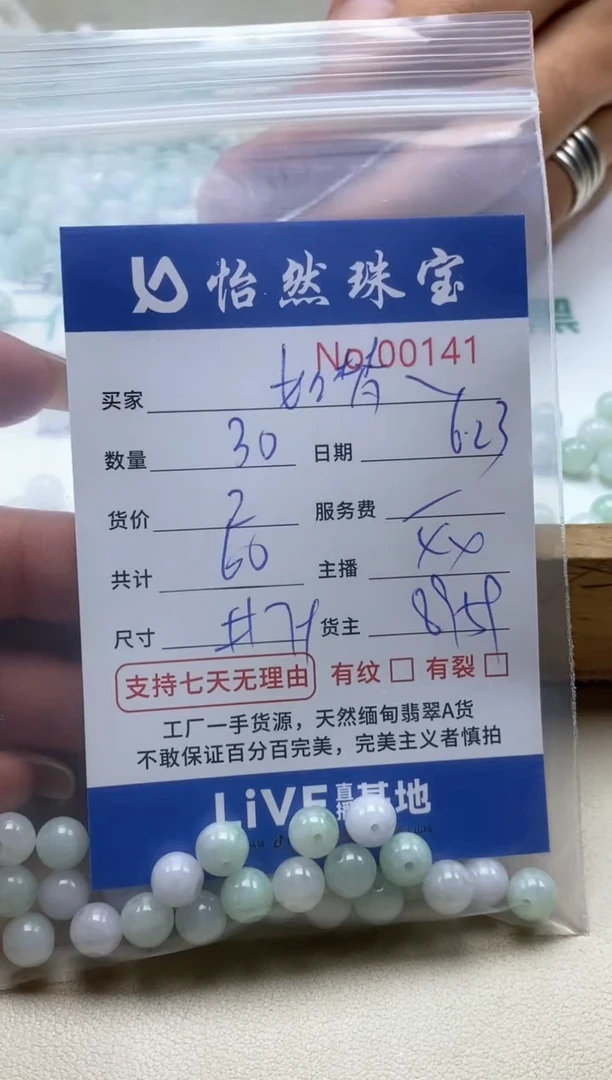 怡然珠宝
No.00141
买家
数量 30 日期 6.23
货价 2 服务费
共计 60 主播 XX
尺寸 货主
支持七天无理由 有纹 有裂
工厂一手货源，天然缅甸翡翠A货
不敢保证百分百完美，完美主义者慎拍
LiVE 直播基地